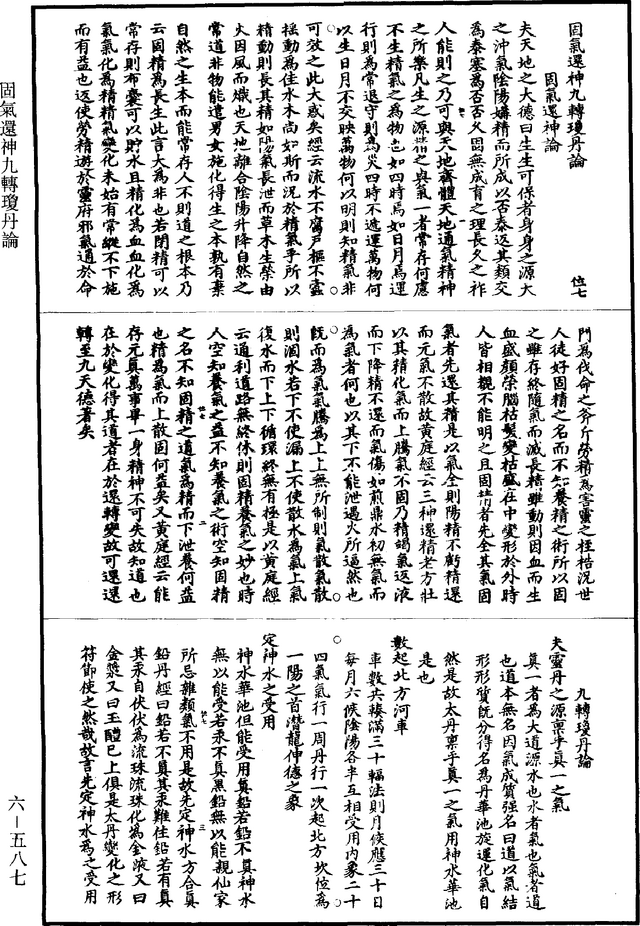 固氣還神九轉瓊丹論
固氣還神九轉瓊丹論
位七
固氣還神論
夫天地之大德曰生生可保者身身之源大
之沖氣陰陽媾精而所成以否泰返其類交
為泰塞為否否久固無成育之理長久之祚
人能則之乃可與天地齊體天地通氣精神
之所樂凡生之源禁之與氣一者常存何慮
不生精氣之為物也如四時焉如日月焉運
行則為常退守則為災四時不遞運萬物何
以生日月不交映萬物何以明則知精氣非
可效之此大惑矣經云流水不腐戶樞不蠹
搖動為佳水木尚如斯而況於精氣乎所以
精動則長其精如陽氣長泄而草木生榮由
火因風而熾也天地離合陰陽升降自然之
常道非物能遣男女施化得生之本孰有棄
自然之生本而能常存人不則道之根本乃
云固精為長生此言大為非也若閉精可以
常存則布囊可以貯水且精化為血血化為
氣氣化為精精氣變化未始有常縱不下施
而有益也迈使勞精遊於靈府邪氣通於命
門為伐命之斧斤勞精為害靈之桎梏況世
人徒好固精之名而不知養精之術所以固
之雖存終隨氣而滅長精雖動則因血而生
血盛顏榮腦枯髮變枯盛在中變形於外時
人皆相覩不能明之且固精者先全其氣固
氣者先還其精是以氣全則陽精不虧精還
而元氣不散故黃庭經云三神還精老方壯
以其精化氣而上騰氣不固乃精竭氣返液
而下降精不還而氣傷如煎鼎水初無氣而
為氣者何也以其下不能泄遇火所逼然也
既而為氣氣騰為上上無所制則氣散氣散
則涸水若下不使漏上不使散水為氣上氣
復水而下上下循環終無有極是以黃庭經
云通利道路無終休則固精養氣之妙也時
人空知養氣之益不知養氣之術空知固精
之名不知固精之道氣為精而下泄養何益
也精為氣而上散固何益矣又黃庭經云能
存元真萬事畢一身精神不可失故知道也
在於變化得其道者在於還轉變故可還還
轉至九天德著矣
九轉瓊丹論
夫靈丹之源稟乎真一之氣
真一者為大道源水也水者氣也氣者道
也道本無名因氣成質強名曰道以氣結
形形質既分得名為丹華池旋運化氣自
然是故太丹稟乎真一之氣用神水華池
是也
數起北方河車
車數共輳滿三十輻法則月候應三十日
每月六候陰陽各半互相受用內象二十
四氣氣行一周丹行一次起北方坎位為
一陽之首潛龍伸德之象
定神水之受用
神水華池但能受用真鉛若鉛不真神水
無以能受若汞不真黑鉛無以能親仙家
所忌雜類氣不用是故先定神水方合真
鉛丹經曰鉛若不真其汞難住鉛若有真
其汞自伏伏為流珠流珠化為金液又曰
金漿又曰玉醴巳上俱是太丹變化之形
符節使之然哉故言先定神水為之受用
六－五八七